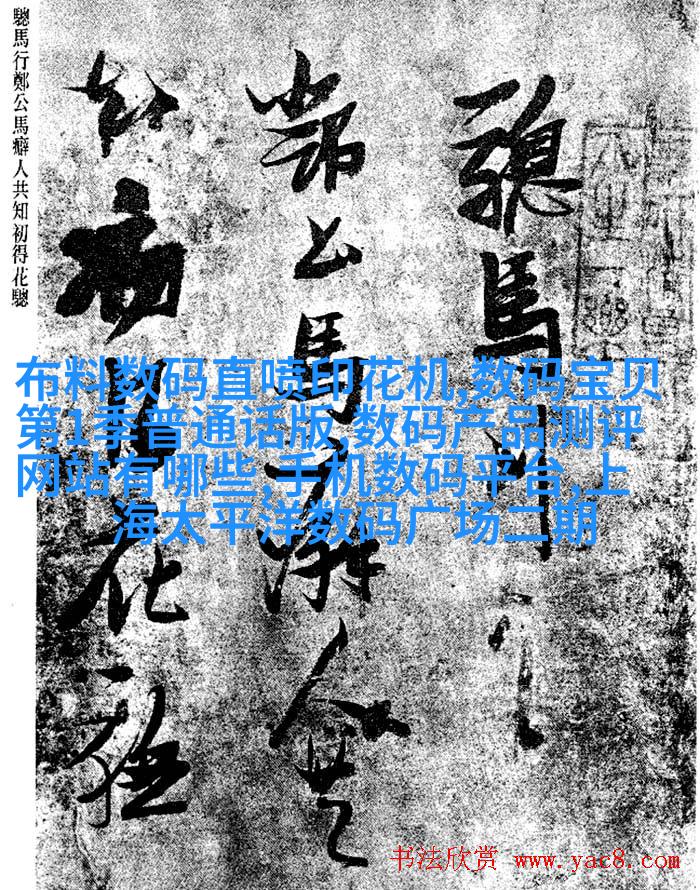 驄馬行
鄭公馬癖人共
知初得花驄
驄馬行鄭公馬癖人共知初得花驄
布料数码直喷印花机,数码宝贝
第1季普通话版,数码产品测评
网站有哪些,手机数码平台,上
海太平洋数码广场二期
书法欣赏 www.yac8.com